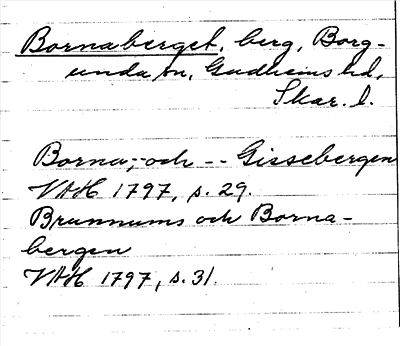 Bornaberget, berg, Borg-
unda sn, Gudhems hd,
Skar. l.
Borna-, och -- Gissebergen
VAH 1797, s. 29.
Brunnums och Borna-
bergen
VAH 1797, s. 31.